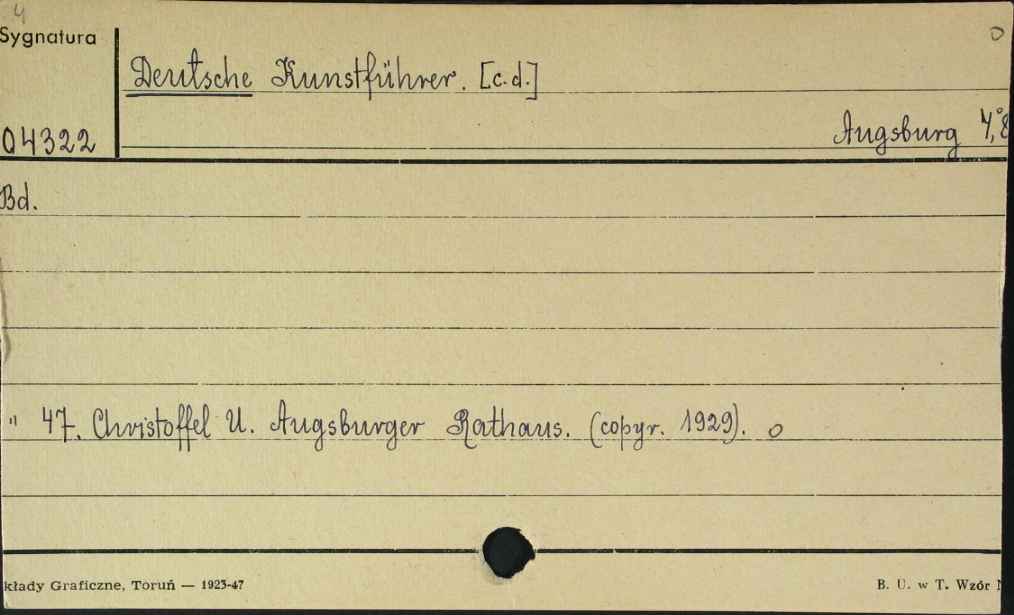 4
Sygnatura
Deutsche Kunstführer. [c.d.]
04322
Augsburg 4,°8
Bd.
" 47. Christoffel U. Augsburger Rathaus. (copyr. 1929). o
kłady Graficzne, Toruń — 1923-47
B. U. w T. Wzór